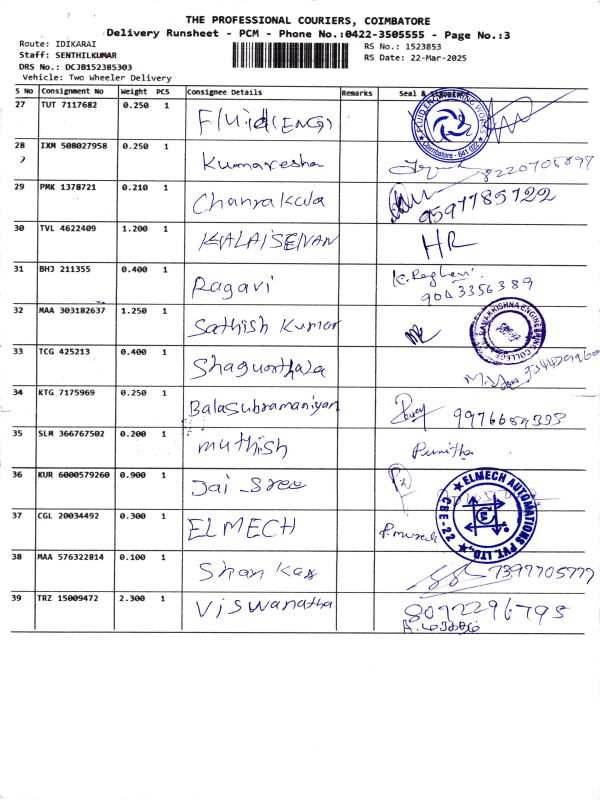 THE PROFESSIONAL COURIERS, COIMBATORE
Delivery Runsheet - PCM - Phone No.:0422-3505555 - Page No.:3
Route: IDIKARAI
RS No.: 1523853
Staff: SENTHILKUMAR
RS Date: 22-Mar-2025
DRS No.: DCJB152385303
Vehicle: Two Wheeler Delivery
S No Consignment No Weight PCS Consignee Details Remarks Seal &
27 TUT 7117682 0.250 1 Fluid (ENG)
FLUID ENGINEERING WORKS
Coimbatore - 641 022
28 IXM 508027958 0.250 1 Kumaresha 8220705897
29 PMK 1378721 0.210 1 Chanrakala 9597785722
30 TVL 4622409 1.200 1 KALAISELVAN HR
31 BHJ 211355 0.400 1 Ragavi
9043356389
32 MAA 303182637 1.250 1 Sathish Kumar
33 TCG 425213 0.400 1
34 KTG 7175969 0.250 1 Balasubramaniyan
35 SLM 366767502 0.200 1 muthish Punitha
36 KUR 6000579260 0.900 1 Jai Sree
37 CGL 20034492 0.300 1 ELMECH
ELMECH AUTOMATIONS PVT. LTD.,
CBE-22
38 MAA 576322814 0.100 1 Shankar 7397705777
39 TRZ 15009472 2.300 1 Viswanatha 8092296795